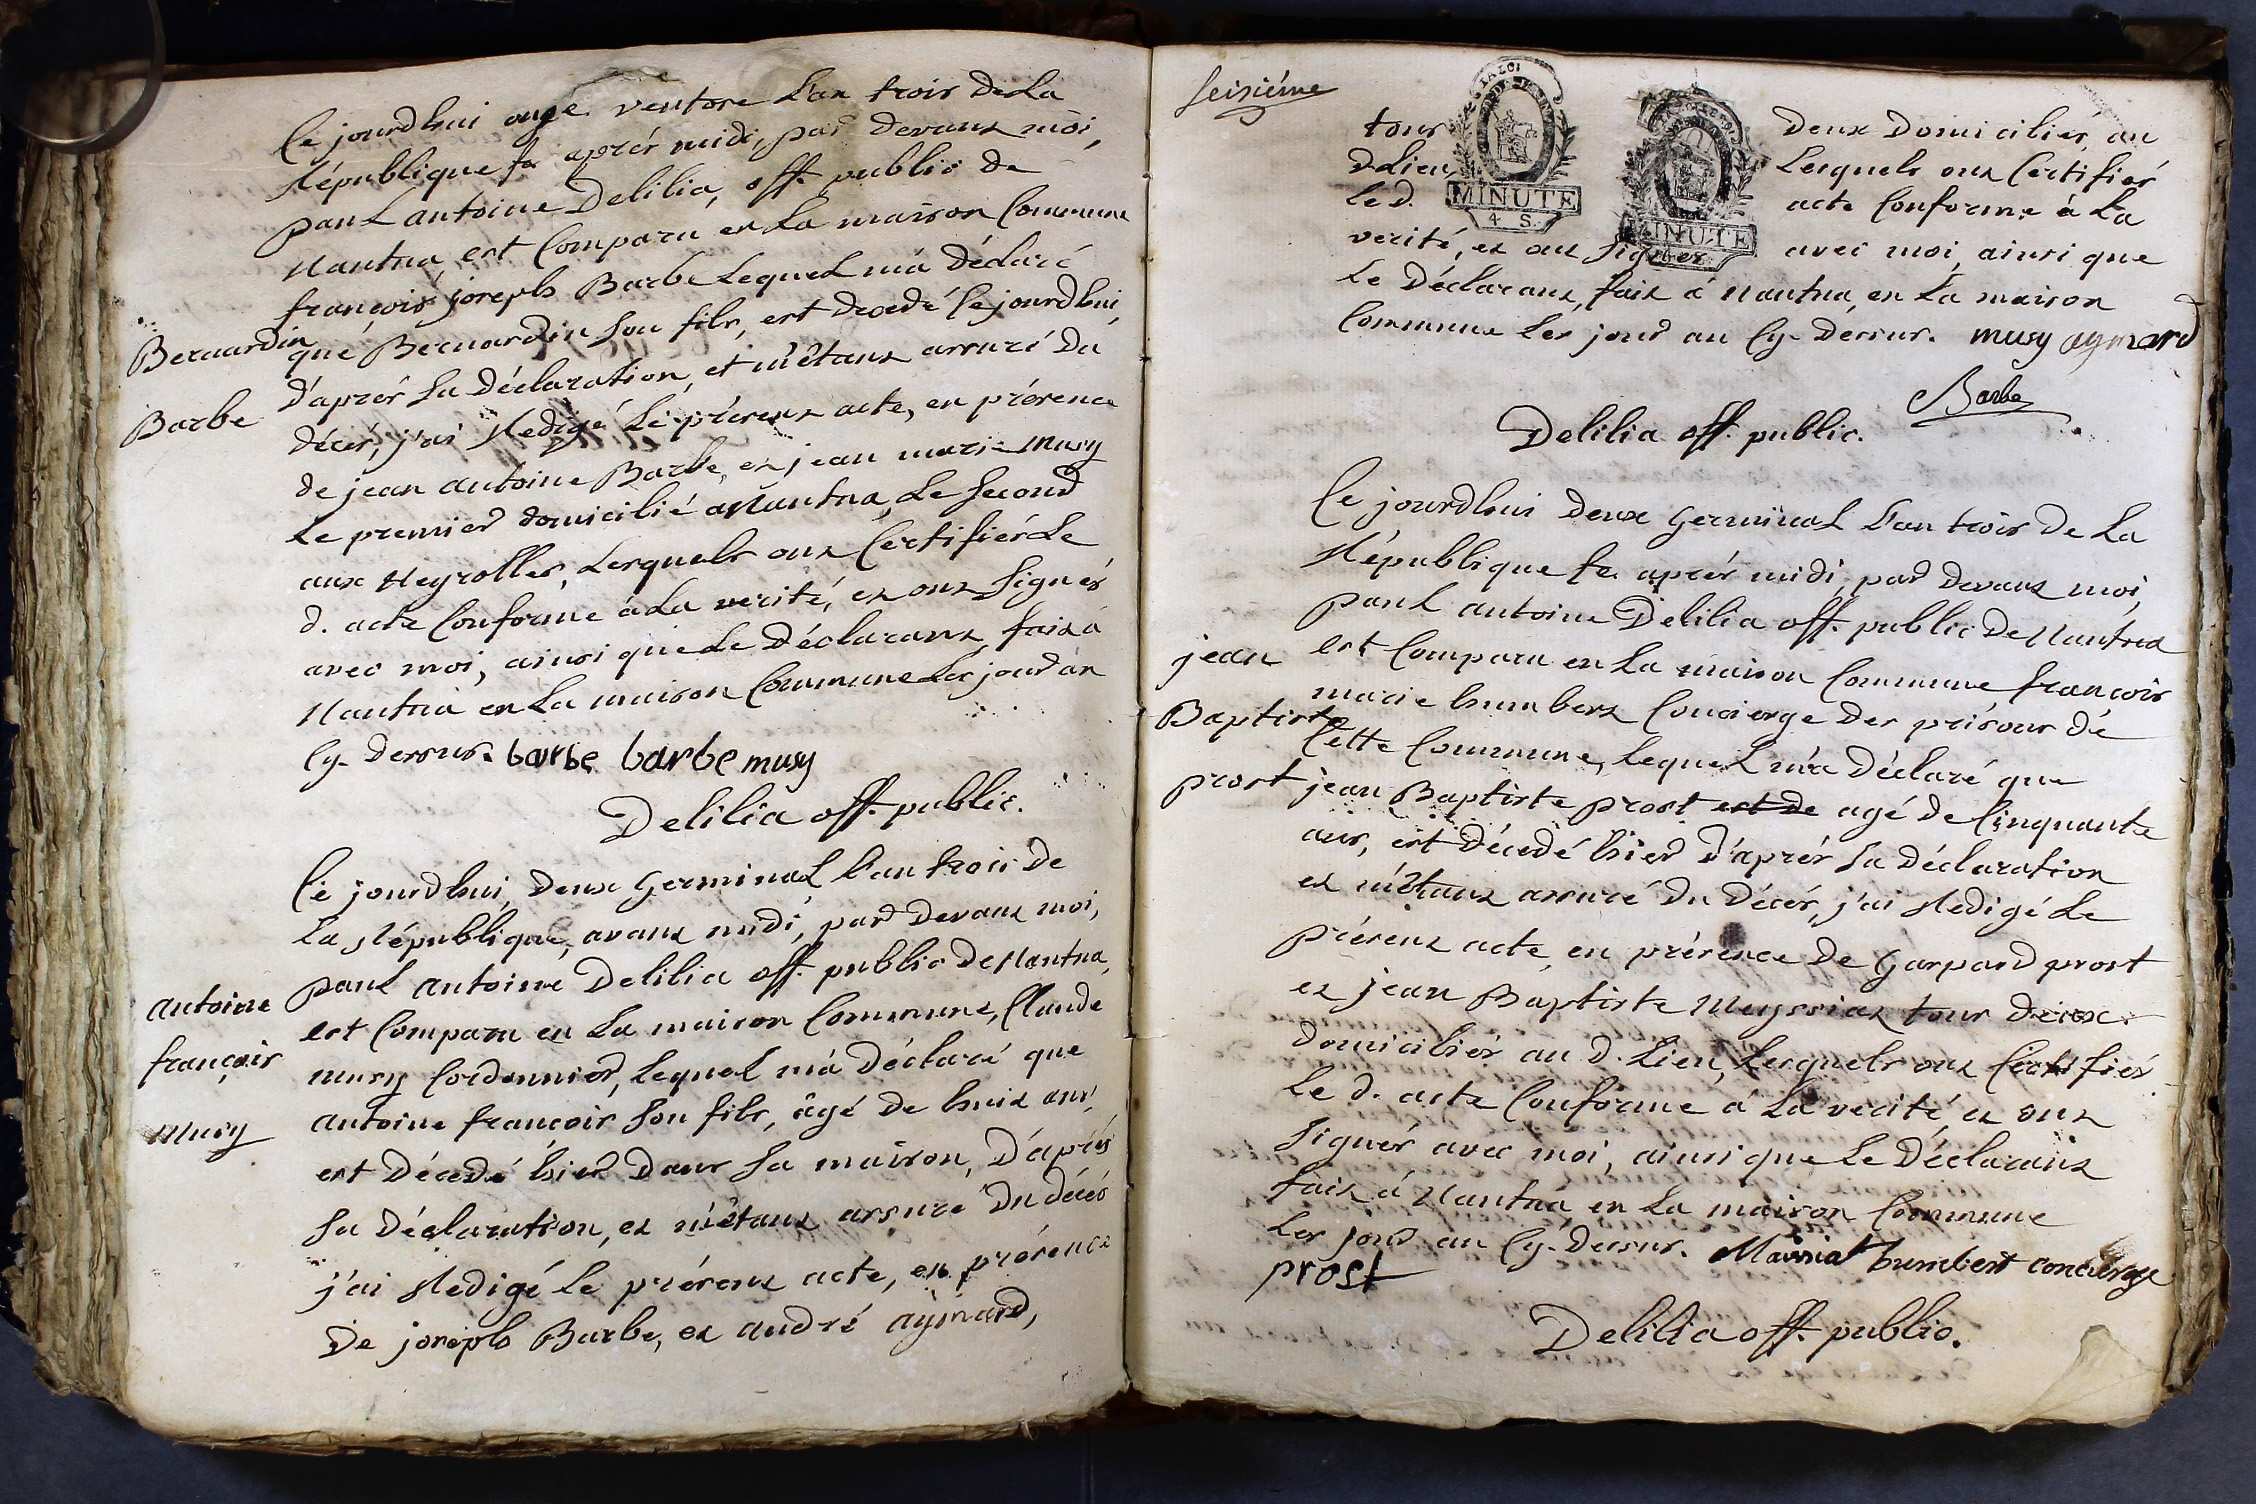 Ce jourdhui onze ventose L'an trois de La
République fse aprés midi, par devant moi,
paul antoine Delilia, off. public de
Nantua est Comparu en La maison Commune
françois joseph Barbe Lequel m'a Déclaré
que Bernardin Son fils, est decedé Ce jourdhui,
d'aprés Sa Déclaration, et m'étant assuré du
décés, j'ai Redigé Le présent acte, en présence
de jean antoine Barbe, et jean marie musy
Le premier domicilié a Nantua, Le Second
aux Neyrolles, Lesquels ont Certifiés Le
d. acte Conforme à La verité, et ont Signés
avec moi, ainsi que Le Déclarant, fait à
Nantua en La maison Commune Les jour an
Cy-dessus. barbe barbe musy
Delilia off. public.
Bernardin
Barbe
Ce jourdhui, deux Germinal L'an trois de
La République, avant midi, par devant moi,
paul antoine Delilia off. public de Nantua,
est Comparu en La maison Commune, Claude
musy Cordonnier, Lequel m'a Déclaré que
antoine francois Son fils, âgé de huit ans,
est Décédé hier dans Sa maison, D'aprés
Sa Déclaration, et m'étant assuré du décés
j'ai Redigé Le présent acte, en présence
De joseph Barbe, et andré aymard,
antoine
françois
Musy
Seisiéme
tous deux Domiciliés, au
d. Lieu, Lesquels ont Certifiés
Le d. acte Conforme à La
verité, et ont Signés avec moi, ainsi que
Le Déclarant, fait à Nantua, en La maison
Commune Les jour an Cy-dessus. musy aymard
Barbe
Delilia off. public.
MINUTE
4 S.
MINUTE
Ce jourdhui deux Germinal L'an trois de La
République fse aprés midi, par devant moi,
paul antoine Delilia off. public de Nantua
est Comparu en La maison Commune francois
marie humbert Concierge des prisons de
Cette Commune, Lequel m'a Déclaré que
jean Baptiste prost est de agé de Cinquante
ans, est décedé hier d'aprés Sa Déclaration
et m'étant assuré du Décés, j'ai Redigé Le
présent acte, en présence de Gaspard prost
et jean Baptiste tous deux
domiciliés au d. Lieu, Lesquels ont Certifiés
Le d. acte Conforme à La verité, et ont
Signés avec moi, ainsi que Le Déclarant
fait à Nantua en La maison Commune
Les jour an Cy-dessus. humbert concierge
prost
Delilia off. public.
jean
Baptiste
prost